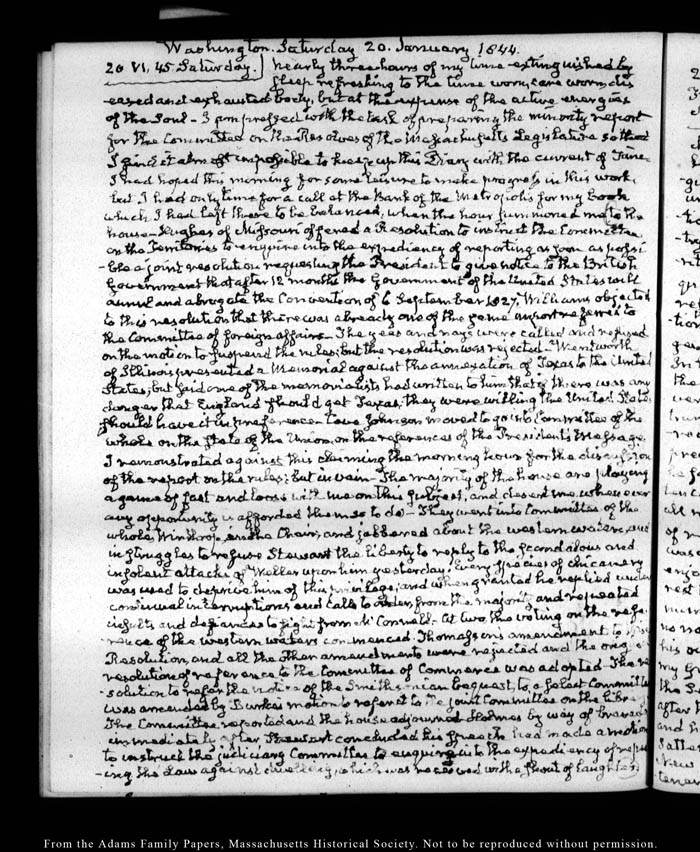 Washington. Saturday 20. January 1844.
20 VI. 45 Saturday. nearly three hours of my time extinguished by
sleep refreshing to the time worn, care worn, dis
eased and exhausted body, but at the expense of the active energies
of the Soul - I am pressed with the task of preparing the minority report
for the Committee on the Resolves of the Massachusetts Legislature so that
I find it almost impossible to keep up this Diary with the current of Time.
I had hoped this morning for some leisure to make progress in this work,
but I had only time for a call at the Bank of the Metropolis for my book
which I had left there to be balanced, when the hour summoned me to the
house - Hughes of Missouri offered a Resolution to instruct the Committee
on the Territories to enquire into the expediency of reporting as soon as possi
-ble a joint resolution requesting the President to give notice to the British
Government that after 12 months the Government of the United States will
annul and abrogate the Convention of 6 September 1827. Williams objected
to this resolution that there was already one of the same import referred to
the Committee of foreign affairs - The yeas and nays were called and refused
on the motion to suspend the rules; but the resolution was rejected - Wentworth
of Illinois presented a Memorial against the annexation of Texas to the United
States; but said one of the memorialists had written to him that if there was any
danger that England should get Texas, they were willing the United States
should have it in preference - Cave Johnson moved to go into Committee of the
whole on the state of the Union, on the references of the President's Message.
I remonstrated against this claiming the morning hour for the discussion
of the report on the rules; but in vain - The majority of the house are playing
a game of fast and loose with me on this subject, and desert me whenever
any opportunity is afforded them so to do - They went into Committee of the
whole, Winthrop in the Chair, and jabbered about the western waters, and
in struggles to refuse Stewart the liberty to reply to the scandalous and
insolent attacks of Weller upon him yesterday. Every species of chicanery
was used to deprive him of this privilege, and when granted he replied under
continual interruptions and calls to order, from the majority and repeated
insults and defiances to fight from McConnell. At two, the voting on the refe
rence of the western waters commenced. Thomasson's amendment to
Resolution, and all the other amendments were rejected and the
resolution of reference to the Committee of Commerce was adopted. The re
-solution to refer the notice of the Smithsonian bequest, to a select Committee
was amended by Burke's motion to refer it to the joint Committee on the Library
The Committee reported and the house adjourned. Holmes by way of
immediately after Stewart concluded his speech had made a motion
to instruct the judiciary Committee to enquire into the expediency of
-ing the Law against duelling, which was received with a shout of laughter.
From the Adams Family Papers, Massachusetts Historical Society. Not to be reproduced without permission.